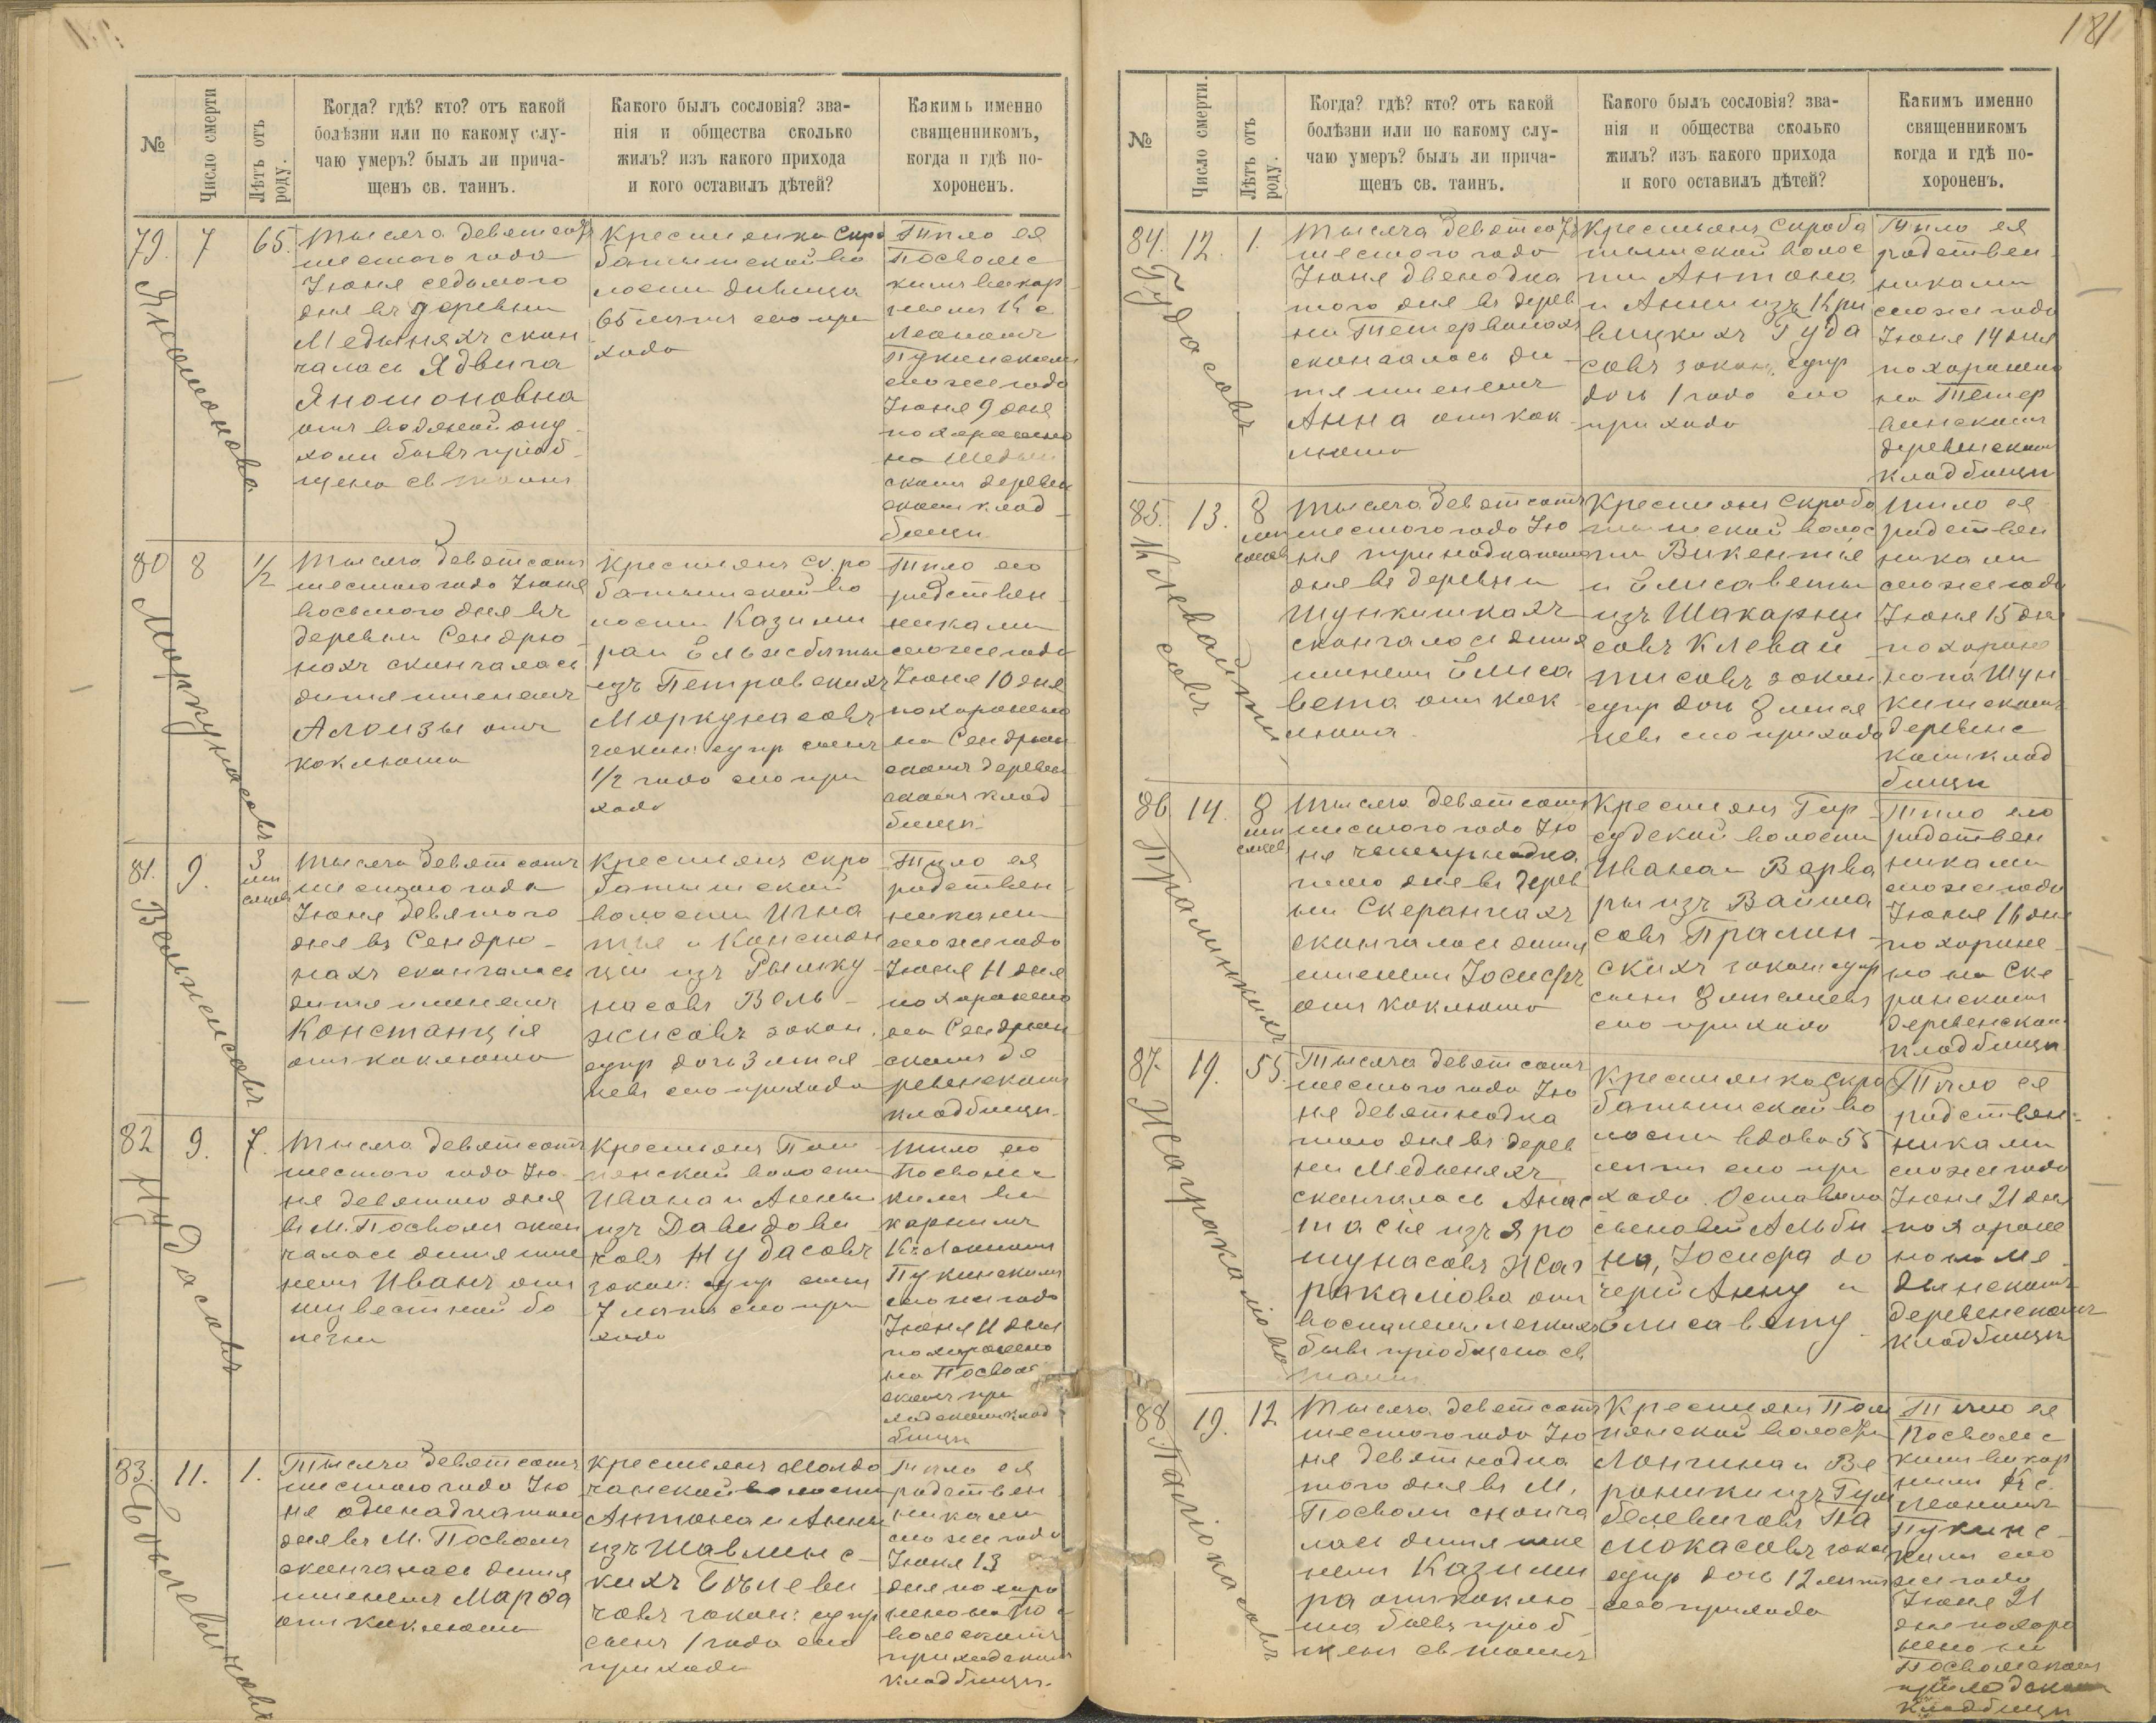 181
№
Число смерти
Лѣтъ отъ роду.
Когда? гдѣ? кто? отъ какой
болѣзни или по какому слу-
чаю умеръ? былъ ли прича-
щенъ св. таинъ.
Какого былъ сословія? зва-
нія и общества сколько
жилъ? изъ какого прихода
и кого оставилъ дѣтей?
Какимъ именно
священникомъ,
когда и гдѣ по-
хороненъ.
79. 7 65.
Тысяча девятсотъ
шестого года
Июня седьмого
дня въ деревни
Медыняхъ скон
чалась Ядвига
Яномоновна
отъ водяной опу
холи бывъ приоб
щена св таинъ
Крестьянка Скро
батышской во
лости дивица
65 лѣтъ сего при
хода
Тѣло ея
Посвольс
кимъ викар
іемъ К с
Леономъ
Пукенскимъ
сего же года
Июня 9 дня
похоронено
на Медын
скомъ деревен
скомъ клад
бищи
80 8 1/2
Моркунасовъ
Тысяча девятсотъ
шестого года Июня
восьмого дня въ
деревни Сендрю
нахъ скончалась
дитя именемъ
Алоизы отъ
коклюша
Крестьянъ Скро
батышской во
лости Казими
ра и Ельжбѣты
изъ Петровскихъ
Моркунасовъ
закон: супр сынъ
1/2 года сего при
хода
Тѣло его
родствен
никами
сего же года
Июня 10 дня
похоронено
на Сендрюн
скомъ деревен
скомъ клад
бищи.
81. 9. 3 мѣ сяцевъ
Вельжисовъ
Тысяча девятсотъ
шестого года
Июня девятого
дня въ Сендрю-
нахъ скончалась
дитя именемъ
Констанція
отъ коклюша
Крестьянъ Скро
батышской
волости Игна
тія и Констан
ціи изъ Рымку
насовъ Вель-
жисовъ закон.
супр дочь 3 мѣся
цевъ сего прихода
Тѣло ея
родствен
никами
сего же года
Июня 11 дня
похоронено
на Сендрюн
скомъ де
ревенскомъ
кладбищи.
82 9. 7.
Жудасовъ
Тысяча девятсотъ
шестого года Ию
ня девятого дня
въ М. Посволи скон
чалась дитя име
немъ Иванъ отъ
неизвестной бо
лезни
Крестьянъ Пом
пянской волости
Ивана и Анны
изъ Давидови
човъ Жудасовъ
закон: супр сынъ
7 лѣтъ сего при
хода
Тѣло его
Посвольс
кимъ ви
карнимъ
К с Леономъ
Пукинскимъ
сего же года
Июня 11 дня
похоронено
на Посволь
скомъ при
ходскомъ клад
бищи
83. 11. 1.
Тысяча девятсотъ
шестого года Ию
ня одинадцатого
дня въ М. Посволи
скончалась дитя
именемъ Марѳа
отъ коклюша
Крестьянъ
волости
Антона и Анны
изъ Шавлинс-
кихъ
човъ закон: супр
сынъ 1 года сего
прихода
Тѣло ея
родствен
никами
сего же года
Июня 13
дня похоро
нено на По
свольскомъ
приходскомъ
кладбищи.
№
Число смерти.
Лѣтъ отъ роду.
Когда? гдѣ? кто? отъ какой
болѣзни или по какому слу-
чаю умеръ? былъ ли прича-
щенъ св. таинъ.
Какого былъ сословія? зва-
нія и общества сколько
жилъ? изъ какого прихода
и кого оставилъ дѣтей?
Какимъ именно
священникомъ
когда и гдѣ по-
хороненъ.
84. 12. 1.
Гудасовъ
Тысяча девятсотъ
шестого года
Июня двенадца
того дня въ дерев
ни Тетервинахъ
скончалась ди
тя именемъ
Анна отъ кок
люша
Крестьянъ Скроба
тышской волос
ти Антона
и Анны изъ Кри
вицкихъ Гуда
совъ закон. супр
дочь 1 года сего
прихода
Тѣло ея
родствен
никами
сего же года
Июня 14 дня
похоронено
на Тетер
винскомъ
деревенскомъ
кладбищи
85. 13. 8 мѣ сяцевъ
Клевайтисовъ
Тысяча девятсотъ
шестого года Ию
ня тринадцатого
дня въ деревни
Шункишкахъ
скончалась дитя
именемъ Елиса
вета отъ кок
люша.
Крестьянъ Скроба
тышской волос
ти Викентія
и Елисаветы
изъ Шакарни
совъ Клевай
тисовъ закон
супр дочь 8 мѣся
цевъ сего прихода
Тѣло ея
родствен
никами
сего же года
Июня 15 дня
похороне
но на Шун
кишскомъ
деревенс
комъ клад
бищи
86 14. 8 мѣ сяцев
Тысяча девятсотъ
шестого года Ию
ня четырнадца
того дня въ дерев
ни Скерангахъ
скончалась дитя
именемъ Іосифъ
отъ коклюша
Крестьянъ Гир
судской волости
Ивана и Варва
ры изъ Вайша
совъ Пралин
скихъ закон супр
сынъ 8 мѣсяцевъ
сего прихода
Тѣло его
родствен
никами
сего же года
Июня 16 дня
похороне
но на Ске
ранскомъ
деревенском
кладбищи
87. 19. 55.
Тысяча девятсотъ
шестого года Ию
ня девятнадца
того дня въ дерев
ни Медыняхъ
скончалась Анас
тасія изъ Яро
шунасовъ Жаг
ракаліова отъ
воспаленія легкихъ
бывъ приобщена св
таинъ.
Крестьянка Скро
батышской во
лости вдова 55
лѣтъ сего при
хода. Оставила
сыновей Альби
на, Іосифа до
черей Анну и
Елисавету
Тѣло ея
родствен-
никами
сего же года
Июня 21 дня
похороне
но на Ме
дынскомъ
деревенскомъ
кладбищи
88. 19. 12
Тысяча девятсотъ
шестого года Ию
ня девятнадца
того дня въ М.
Посволи сконча
лась дитя име
немъ Казими
ра отъ коклю
ша бывъ приоб
щена св таинъ
Крестьянъ Пом
пянской волости
Лонгина и Ве
роники изъ
Па
люкасовъ закон
супр дочь 12 лѣтъ
сего прихода
Тѣло ея
Посвольс
кимъ викар
нимъ Кс.
Леономъ
Пукинс-
кимъ сего
же года
Июня 21
дня похоро
нено на
Посвольскомъ
приходскомъ
кладбищи